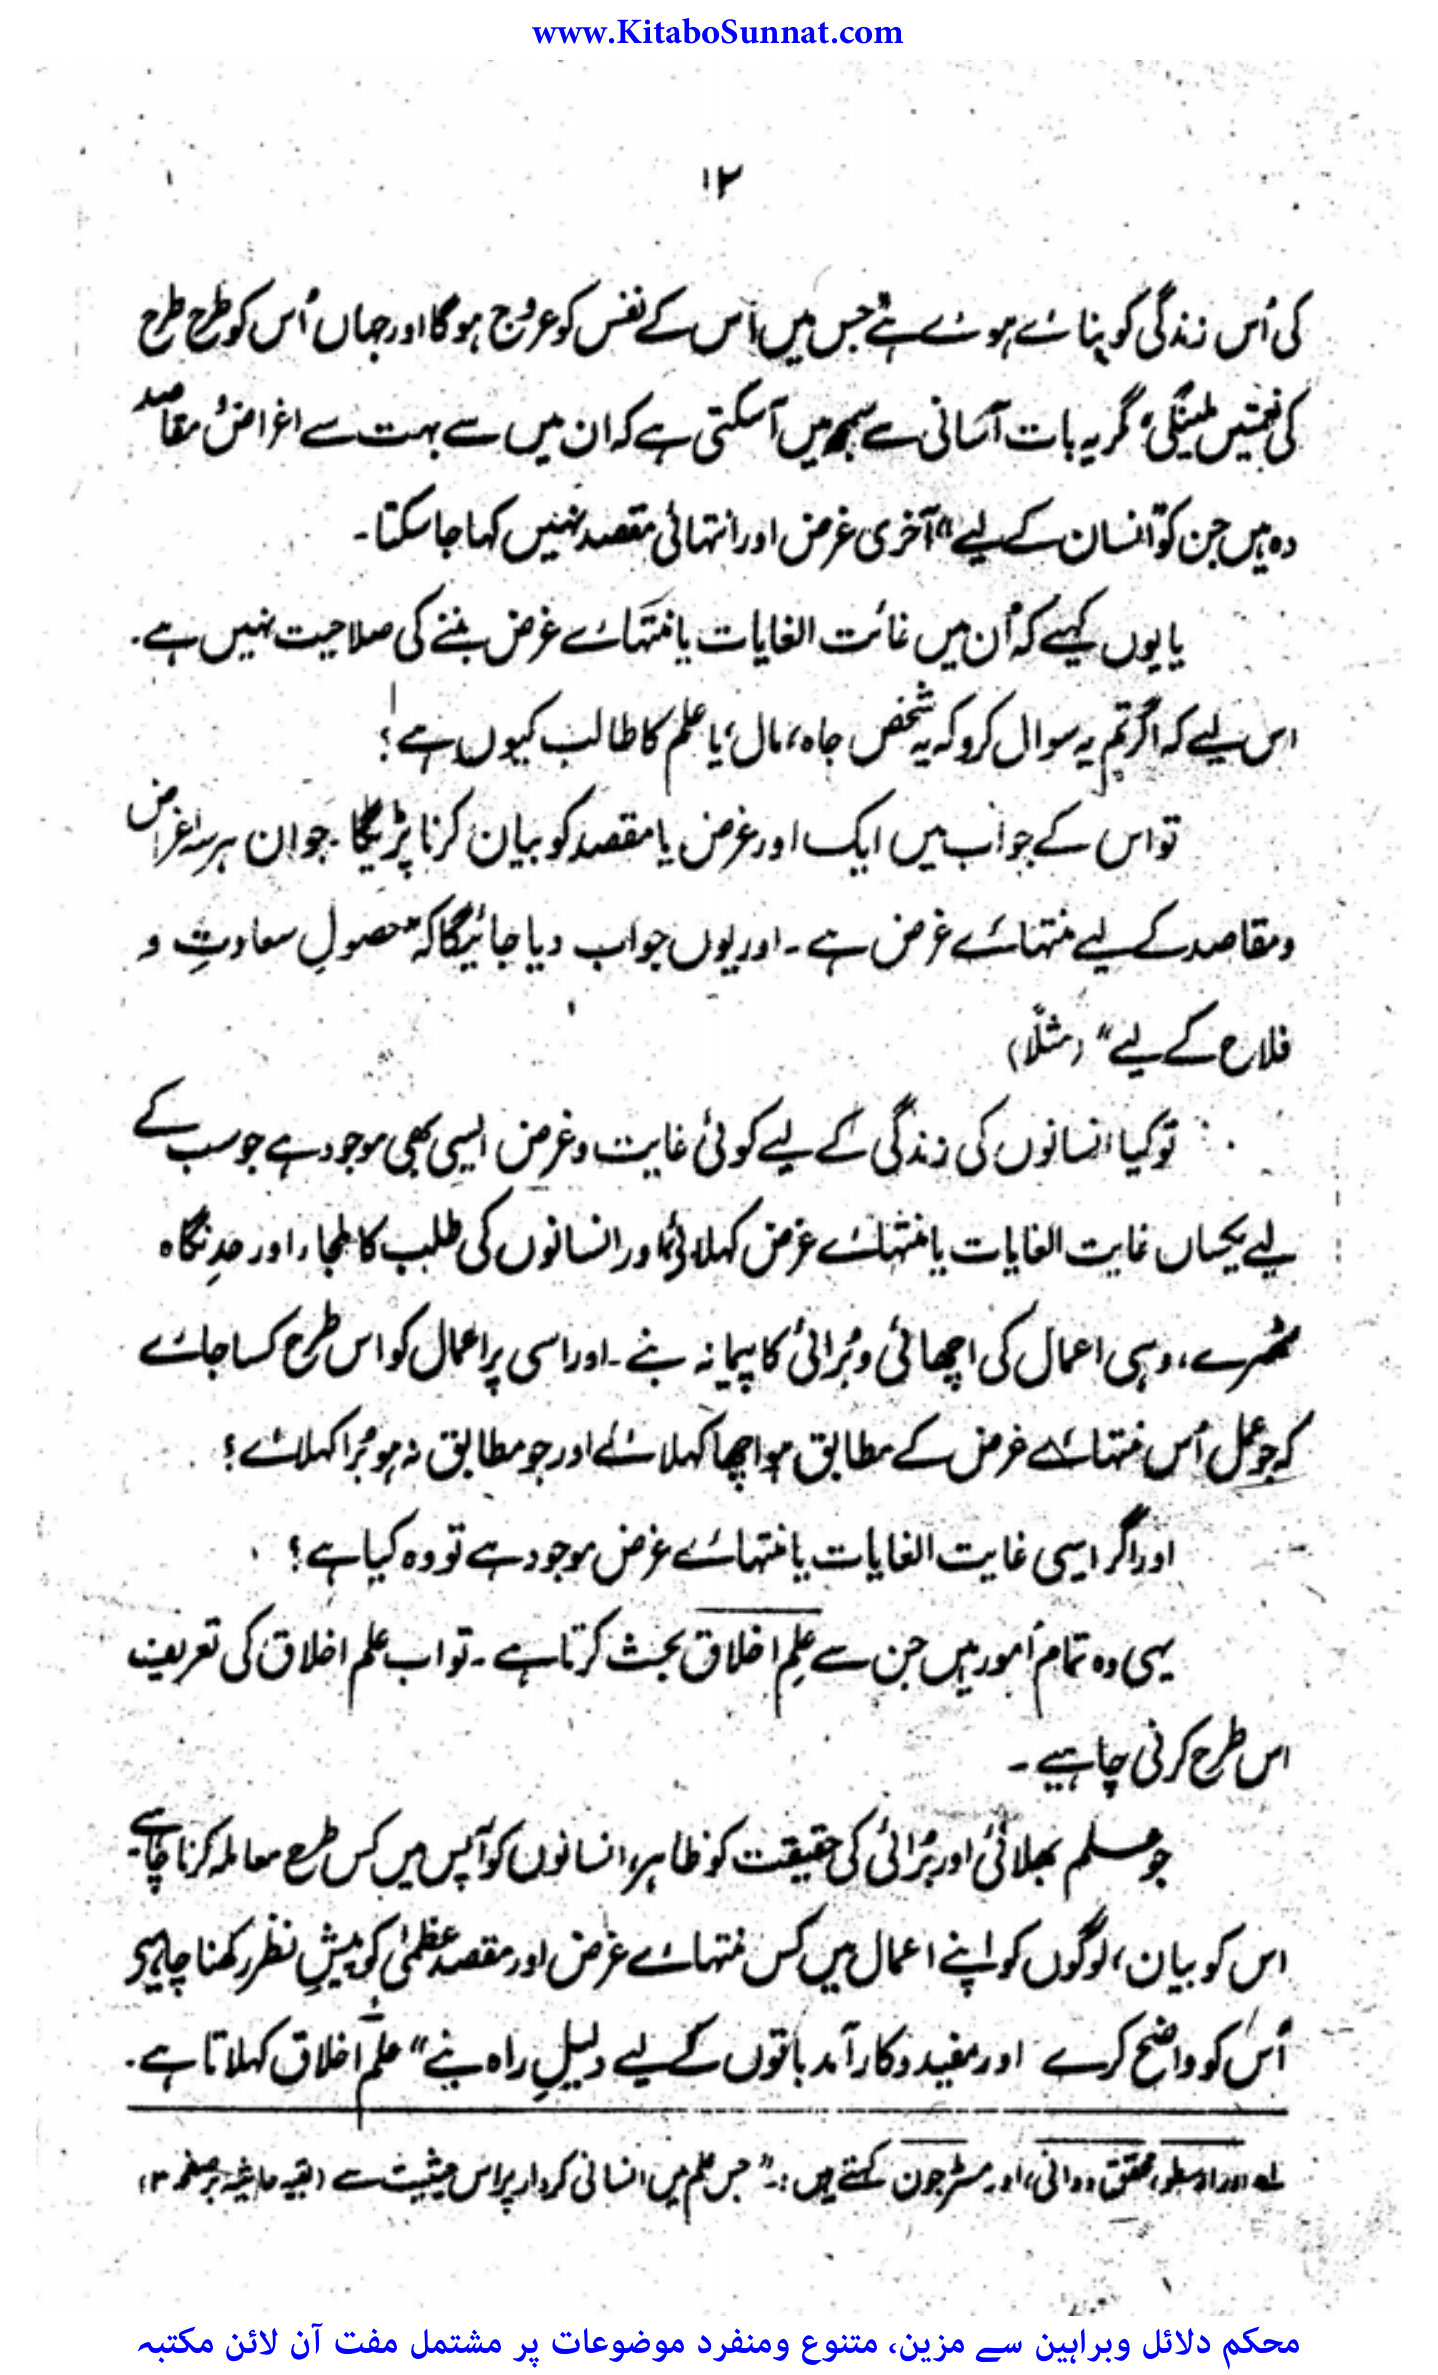 www.KitaboSunnat.com
۱۲
کی اُس زندگی کو بنائے ہوئے ہے جس میں اُس کے نفس کو عروج ہوگا اور جہاں اُس کو طرح طرح
کی نعمتیں ملینگی، مگر یہ بات آسانی سے سمجھ میں آسکتی ہے کہ ان میں سے بہت سے اغراض و مقاصد
وہ ہیں جن کو "انسان کے لیے" آخری غرض اور انتہائی مقصد نہیں کہا جا سکتا۔
یا یوں کہیے کہ اُن میں غائت الغایات یا منتہائے غرض بننے کی صلاحیت نہیں ہے۔
اس لیے کہ اگر تم یہ سوال کرو کہ یہ شخص جاہ، مال، یا علم کا طالب کیوں ہے؟
تو اس کے جواب میں ایک اور غرض یا مقصد کو بیان کرنا پڑیگا۔ جو ان ہر سہ اغراض
و مقاصد کے لیے منتہائے غرض ہے۔ اور یوں جواب دیا جائیگا کہ "حصولِ سعادت و
فلاح کے لیے" (مثلاً)
تو کیا انسانوں کی زندگی کے لیے کوئی غایت و غرض ایسی بھی موجود ہے جو سب کے
لیے یکساں غایت الغایات یا منتہائے غرض کہلائے، اور انسانوں کی طلب کا ملجاء اور حدِ نگاہ
ٹھہرے، وہی اعمال کی اچھائی و بُرائی کا پیمانہ بنے۔ اور اسی پر اعمال کو اس طرح کسا جائے
کہ جو عمل اُس منتہائے غرض کے مطابق ہو اچھا کہلائے اور جو مطابق نہ ہو بُرا کہلائے؟
اور اگر ایسی غایت الغایات یا منتہائے غرض موجود ہے تو وہ کیا ہے؟
یہی وہ تمام اُمور ہیں جن سے علمِ اخلاق بحث کرتا ہے۔ تو اب علم اخلاق کی تعریف
اس طرح کرنی چاہیے۔
جو علم بھلائی اور بُرائی کی حقیقت کو ظاہر، انسانوں کو آپس میں کس طرح معاملہ کرنا چاہیے
اس کو بیان، لوگوں کو اپنے اعمال میں کس منتہائے غرض اور مقصد عظمیٰ کو پیشِ نظر رکھنا چاہیے
اُس کو واضح کرے اور مفید و کارآمد باتوں کے لیے دلیلِ راہ بنے" علم اخلاق کہلاتا ہے۔
لہ اور ارسطو، محققِ دوانی، اور مسٹر جون کہتے ہیں:۔ "جس علم میں انسانی کردار پر اس حیثیت سے (بقیہ حاشیہ بر صفحہ ۱۳)
محکم دلائل وبراہین سے مزین، متنوع ومنفرد موضوعات پر مشتمل مفت آن لائن مکتبہ